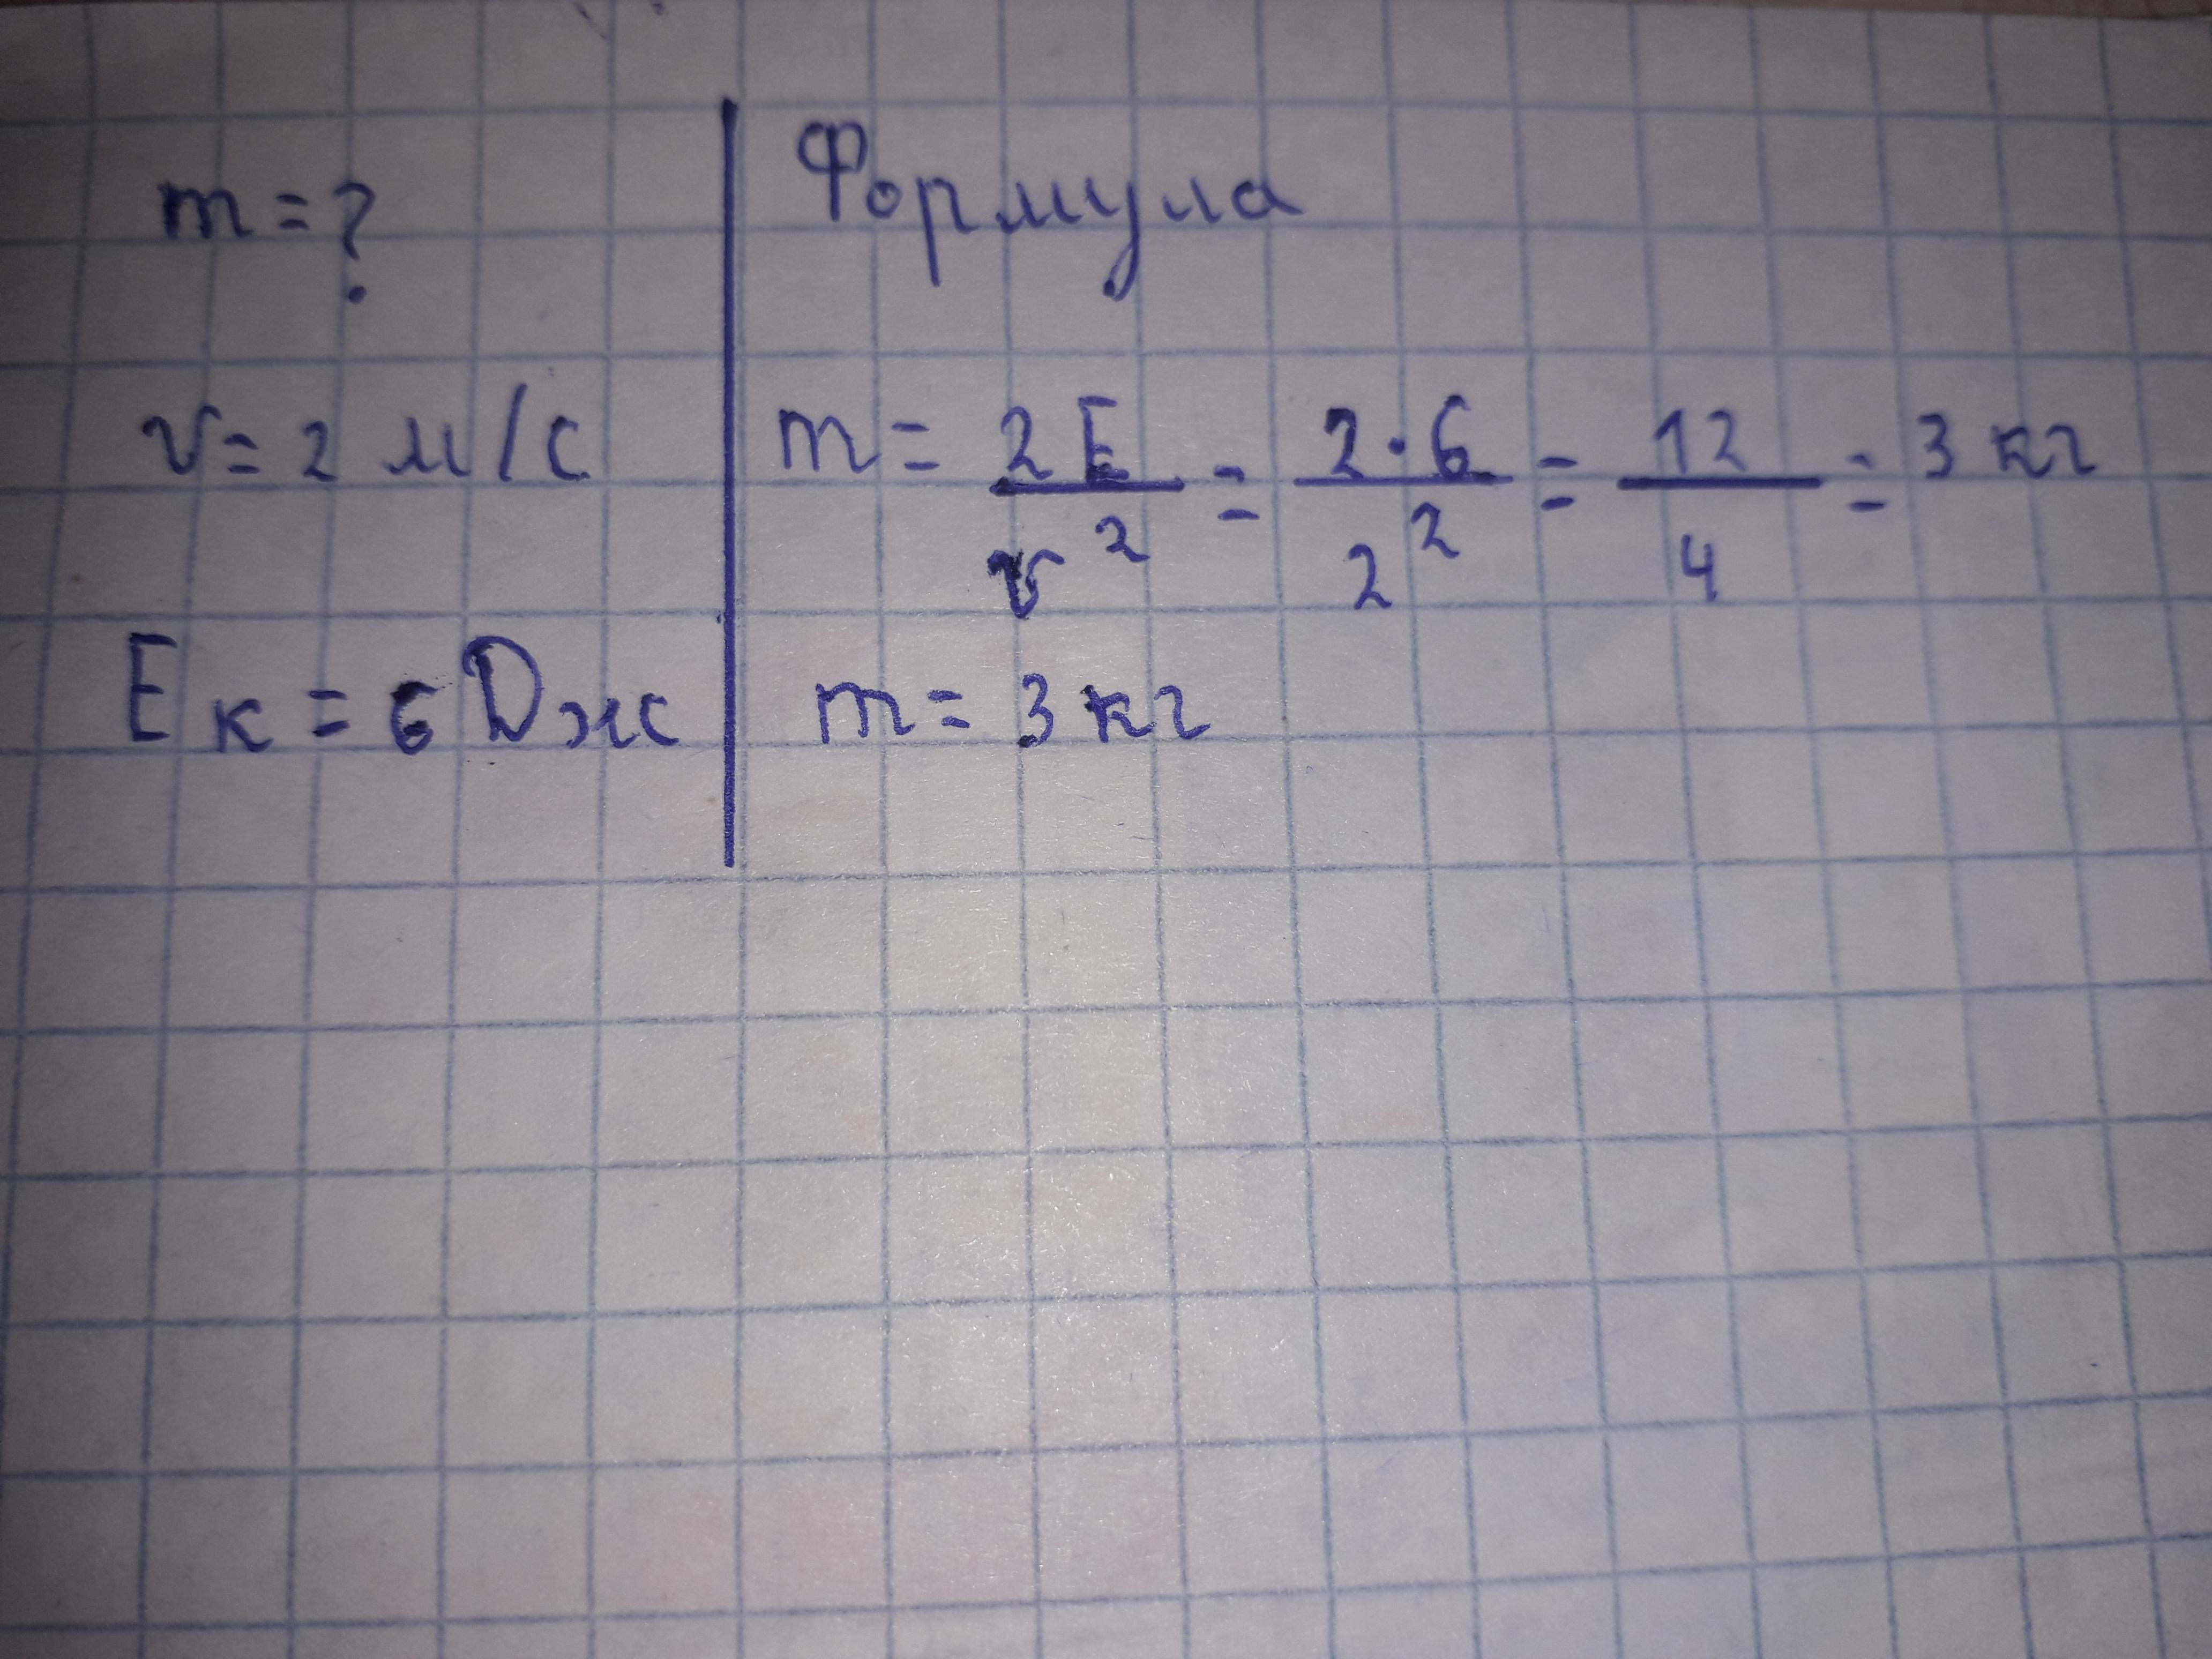 m = ?
v = 2 м/с
Eк = 6 Dж
Формула
m = 2E/v² = 2·6/2² = 12/4 = 3 кг
m = 3 кг